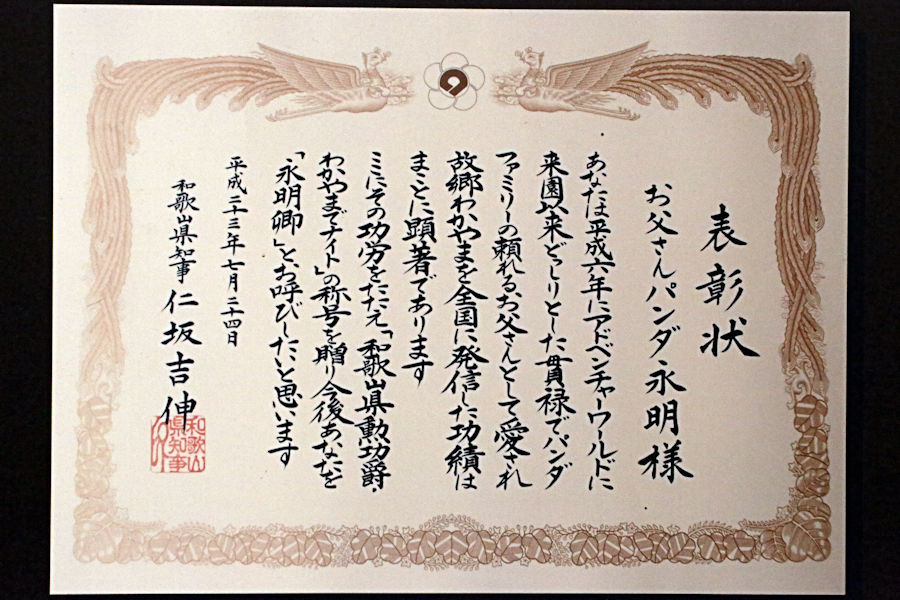 表彰状
お父さんパンダ永明様
あなたは平成六年にアドベンチャーワールドに
来園以来どっしりとした貫禄でパンダ
ファミリーの頼れるお父さんとして愛され
故郷わかやまを全国に発信した功績は
まことに顕著であります
ここにその功労をたたえ「和歌山県勲功爵・
わかやまでナイト」の称号を贈り今後あなたを
「永明卿」と、お呼びしたいと思います
平成二十三年七月二十四日
和歌山県知事 仁坂吉伸
和歌山
県知事
印